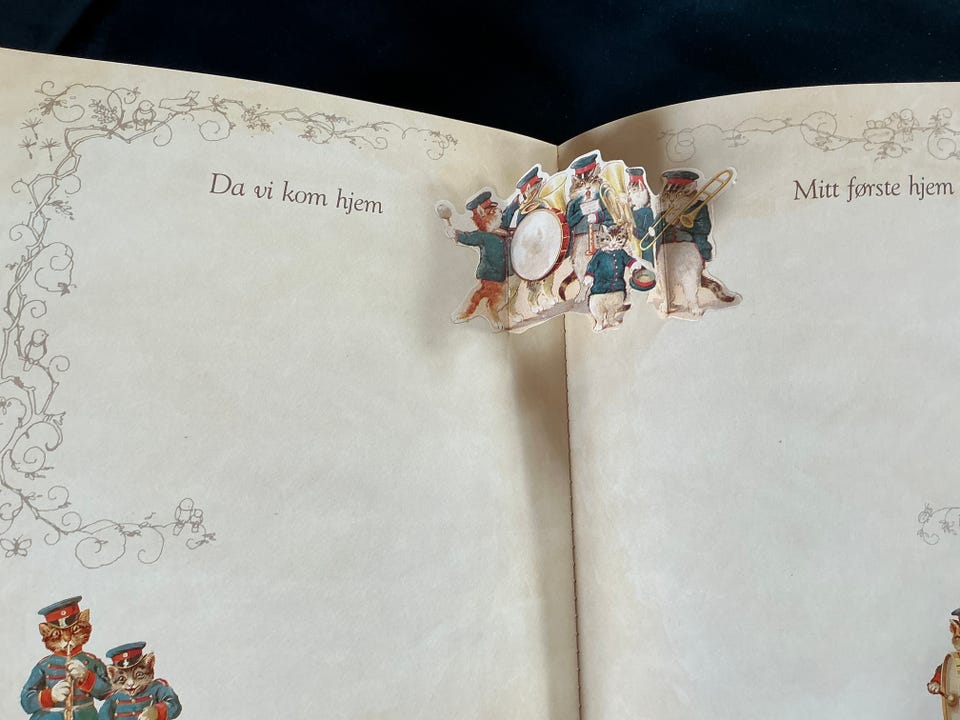 Da vi kom hjem
Mitt første hjem